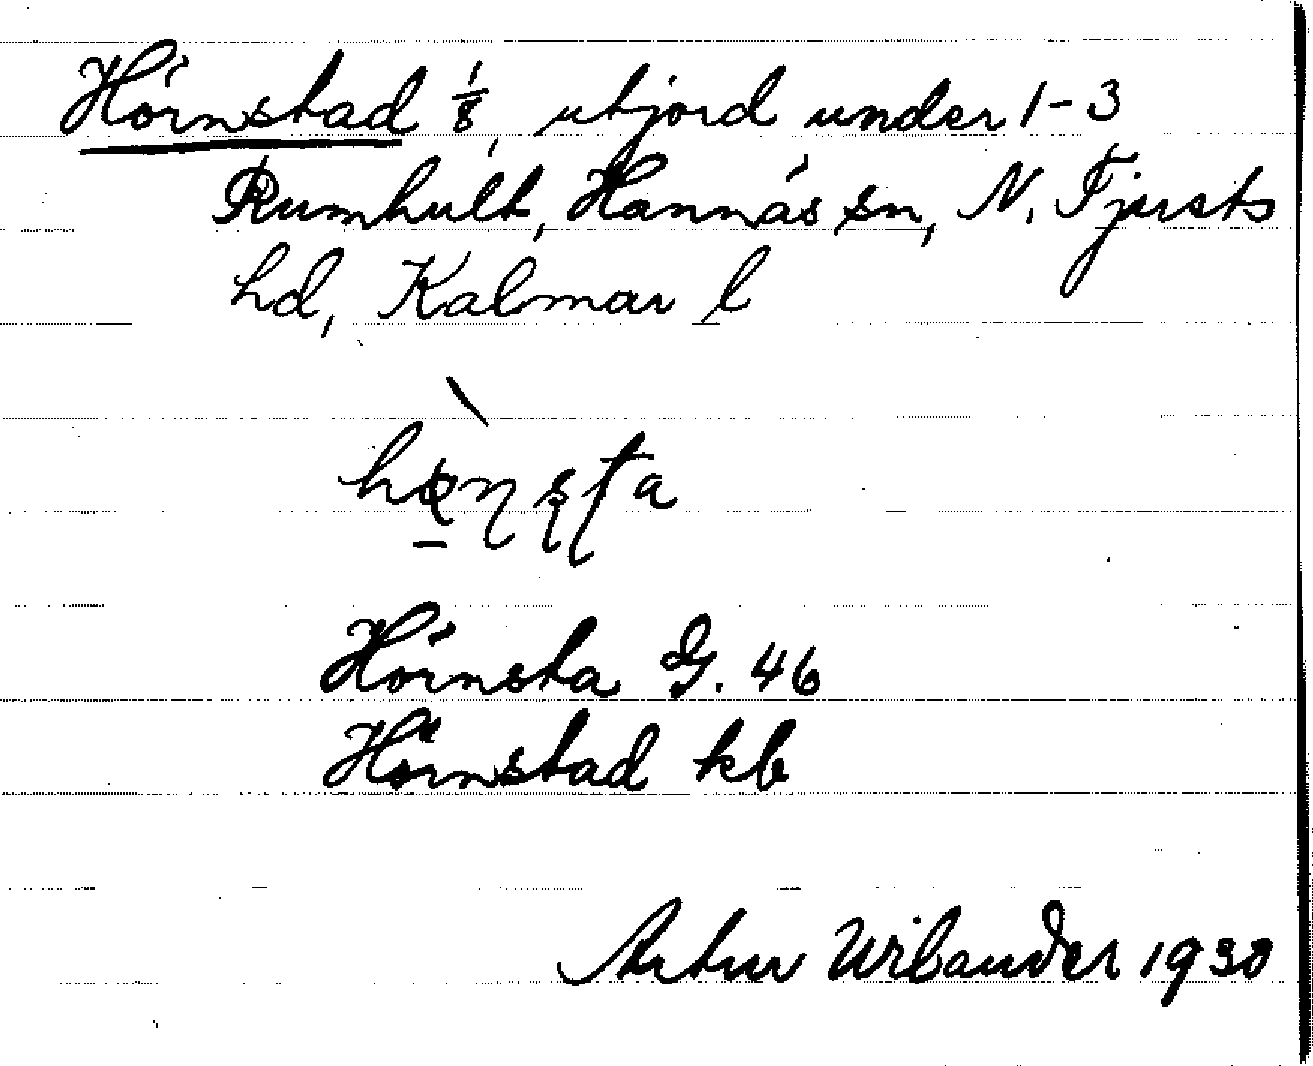 Hörnstad 1/8, utjord under 1-3
Rumhult, Hannäs sn, N. Tjusts
hd, Kalmar l
Hörnsta G. 46
Hörnstad kb
Artur Wilander 1930